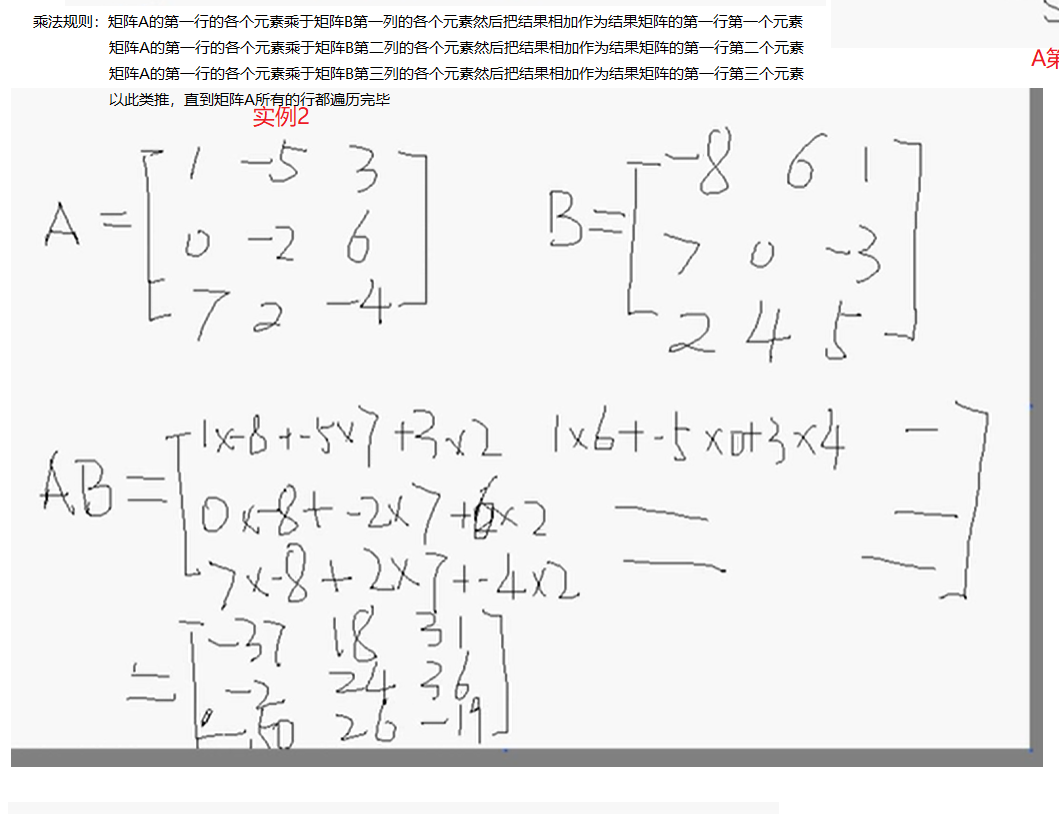 乘法规则：矩阵A的第一行的各个元素乘于矩阵B第一列的各个元素然后把结果相加作为结果矩阵的第一行第一个元素
矩阵A的第一行的各个元素乘于矩阵B第二列的各个元素然后把结果相加作为结果矩阵的第一行第二个元素
矩阵A的第一行的各个元素乘于矩阵B第三列的各个元素然后把结果相加作为结果矩阵的第一行第三个元素
A第
以此类推，直到矩阵A所有的行都遍历完毕
实例2
1 -5 3
A = 0 -2 6
7 2 -4
-8 6 1
B = 7 0 -3
2 4 5
1×-8+-5×7+3×2 1×6+-5×0+3×4 —
AB = 0×-8+-2×7+6×2 — —
7×-8+2×7+-4×2 — —
-37 18 31
= -2 24 36
-50 26 -19